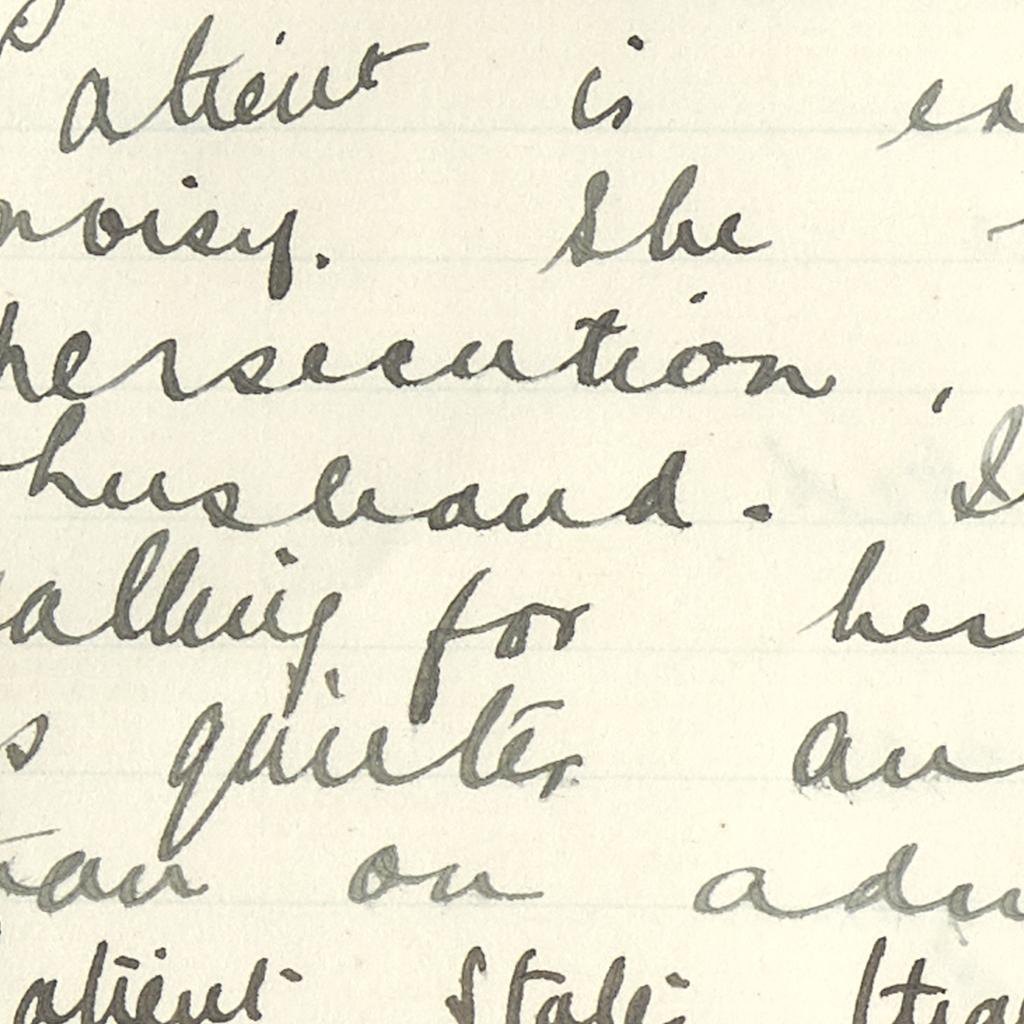 Patient is ex
noisy. She
persecution,
husband. I
calling for her
s quieter an
than on adm
Patient States tha